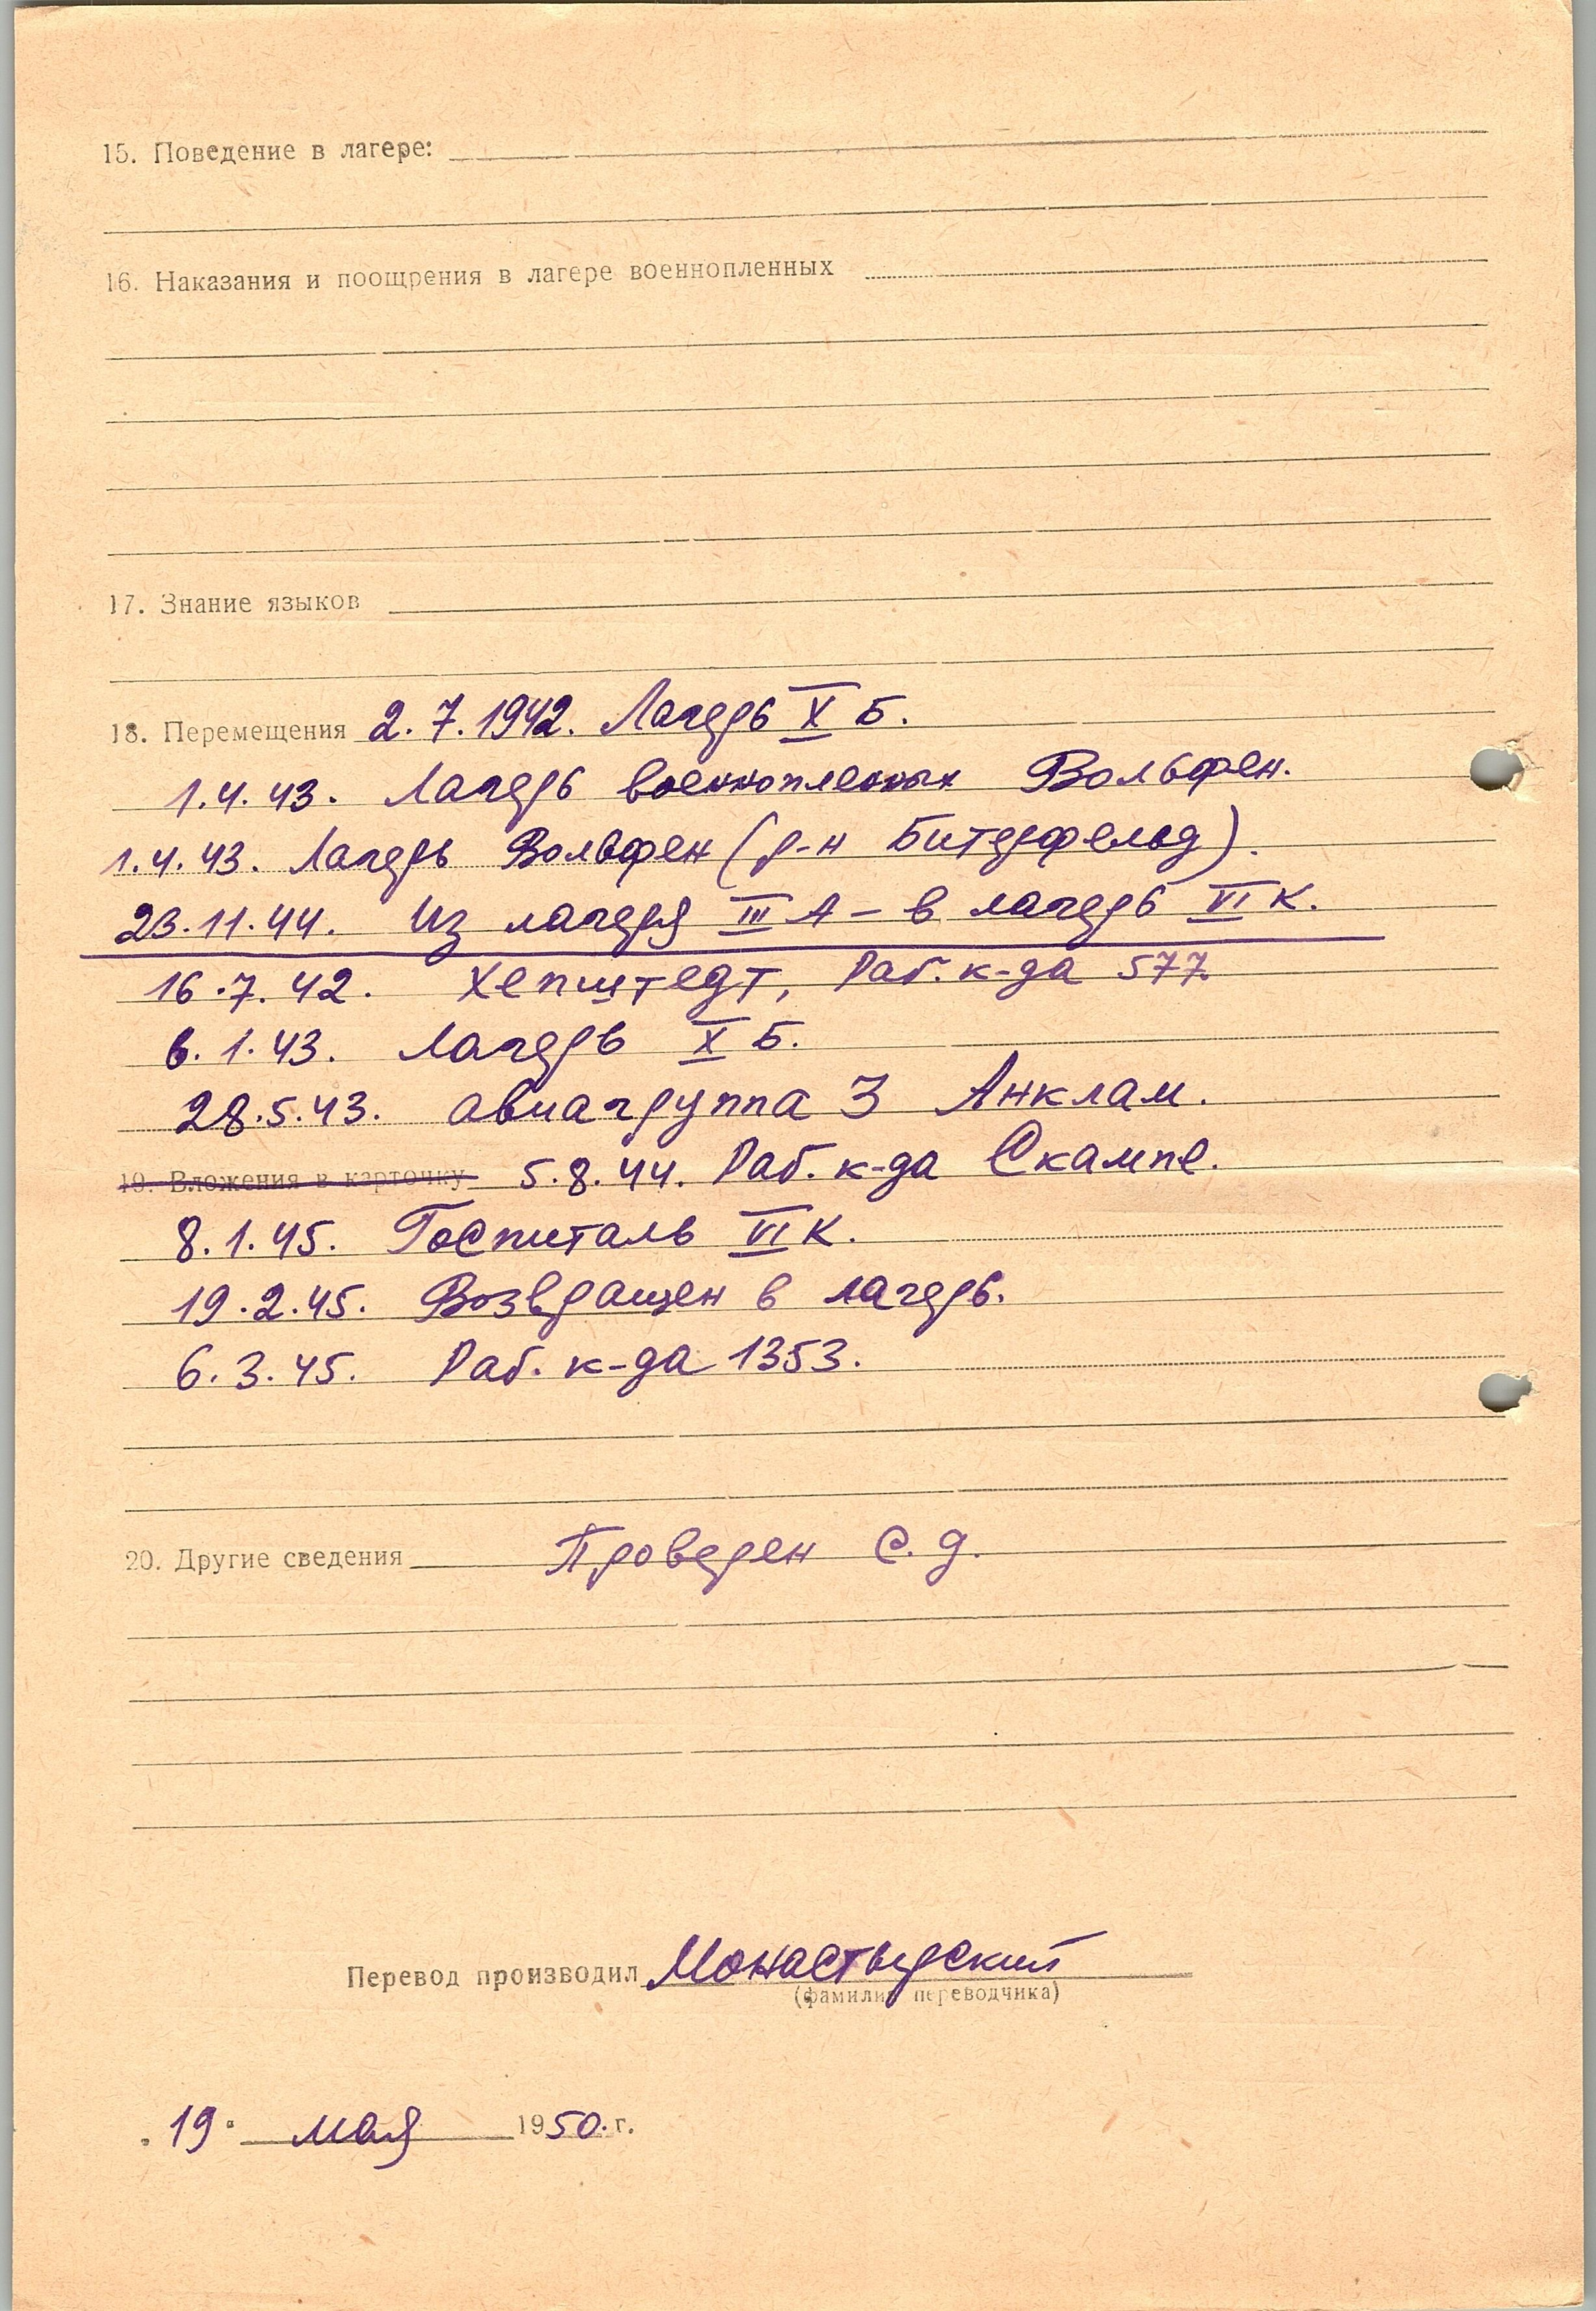 15. Поведение в лагере:
16. Наказания и поощрения в лагере военнопленных
17. Знание языков
18. Перемещения 2.7.1942. Лагерь X Б.
1.4.43. Лагерь военнопленных Вольфен.
1.4.43. Лагерь Вольфен (р-н Биттерфельд).
23.11.44. Из лагеря III А - в лагерь VI К.
16.7.42. Хепштедт, Раб. к-да 577.
6.1.43. Лагерь X Б.
28.5.43. авиагруппа 3 Анклам.
19. Вложения в карточку 5.8.44. Раб. к-да Скампе.
8.1.45. Госпиталь VI К.
19.2.45. Возвращен в лагерь.
6.3.45. Раб. к-да 1353.
20. Другие сведения Проверен С.Д.
Перевод производил Монастырский
(фамилия переводчика)
"19" мая 1950 г.